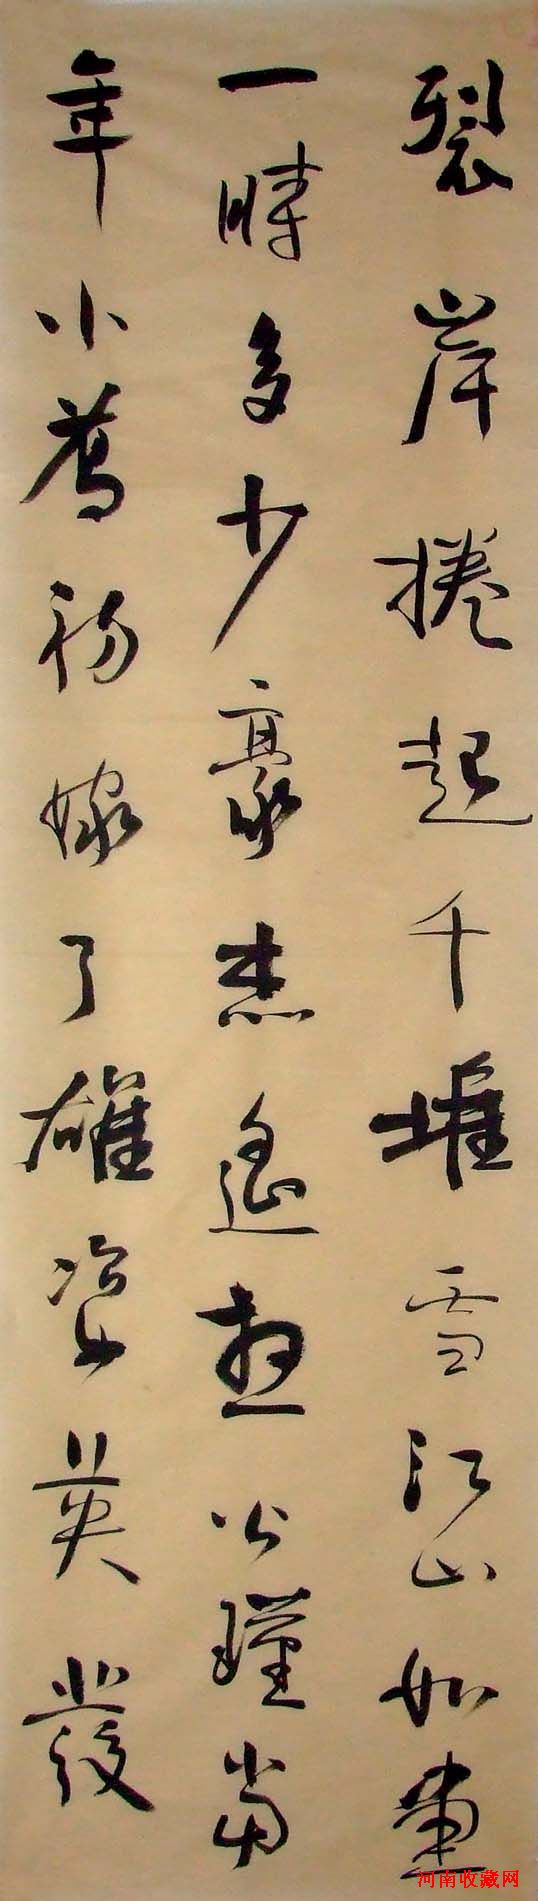 裂岸捲起千堆雪江山如畫
一時多少豪杰遙想公瑾當
年小喬初嫁了雄姿英發
河南收藏网